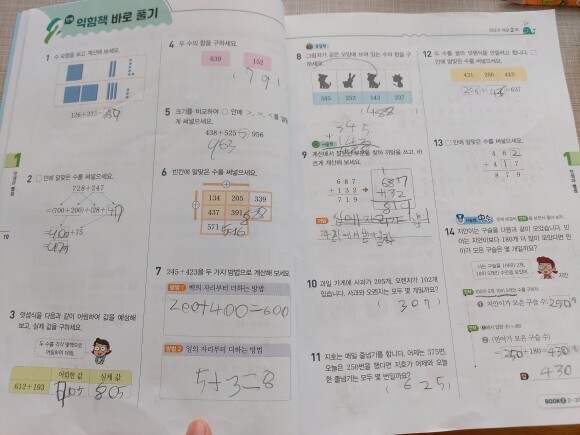 익힘책 바로 풀기
1 수 모형을 보고 계산해 보세요.
126+232=
2 □ 안에 알맞은 수를 써넣으세요.
728+247
=(700+200)+(28+47)
3 덧셈식을 다음과 같이 어림하여 값을 예상해
보고, 실제 값을 구하세요.
두 수를 각각 몇백으로
어림하여 더해.
어림한 값 실제 값
612+193 805
4 두 수의 합을 구하세요.
639 152
(791)
5 크기를 비교하여 ○ 안에 >, =, <를 알맞
게 써넣으세요.
438+525 > 956
963
6 빈칸에 알맞은 수를 써넣으세요.
134 205 339
437 391
571
7 245+423을 두 가지 방법으로 계산해 보세요.
방법 1 백의 자리부터 더하는 방법
200+400=600
방법 2 일의 자리부터 더하는 방법
5+3=8
8 그림자가 같은 모양에 쓰여 있는 수의 합을 구
하세요.
345 252 143 237
(488)
345
+143
9 계산에서 잘못된 부분을 찾아 까닭을 쓰고, 바
르게 계산해 보세요.
687
+132
719
687
+132
819
까닭
10 과일 가게에 사과가 205개, 오렌지가 102개
있습니다. 사과와 오렌지는 모두 몇 개일까요?
(307)
11 지호는 매일 줄넘기를 합니다. 어제는 375번,
오늘은 250번을 했다면 지호가 어제와 오늘
한 줄넘기는 모두 몇 번일까요?
(625)
12 두 수를 골라 덧셈식을 만들려고 합니다. □
안에 알맞은 수를 써넣으세요.
431 206 445
=637
13 □ 안에 알맞은 수를 써넣으세요.
462
+417
879
14 지안이는 구슬을 다음과 같이 모았습니다. 민
아는 지안이보다 180개 더 많이 모았다면 민
아가 모은 구슬은 몇 개일까요?
지안
(지안이가 모은 구슬 수)=250개
(민아가 모은 구슬 수)
=250+180=430(개)
답 430
10
BOOK